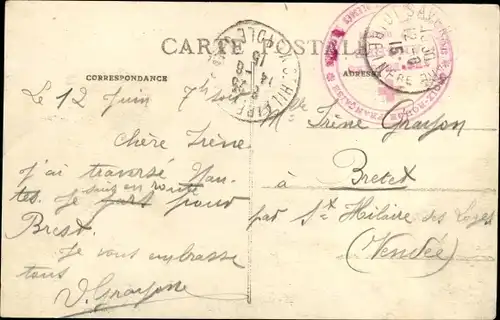 CARTE POSTALE
CORRESPONDANCE
ADRESSE
Le 12 Juin 7h soir
Chère Irène
J'ai traversé Nan-
tes. Je suis en route pour
Brest.
Je vous embrasse
tous
V. Grayon
Mlle Irène Grayon
à Bretet
par St Hilaire des Loges
(Vendée)
ST HILAIRE
FRANÇAISE